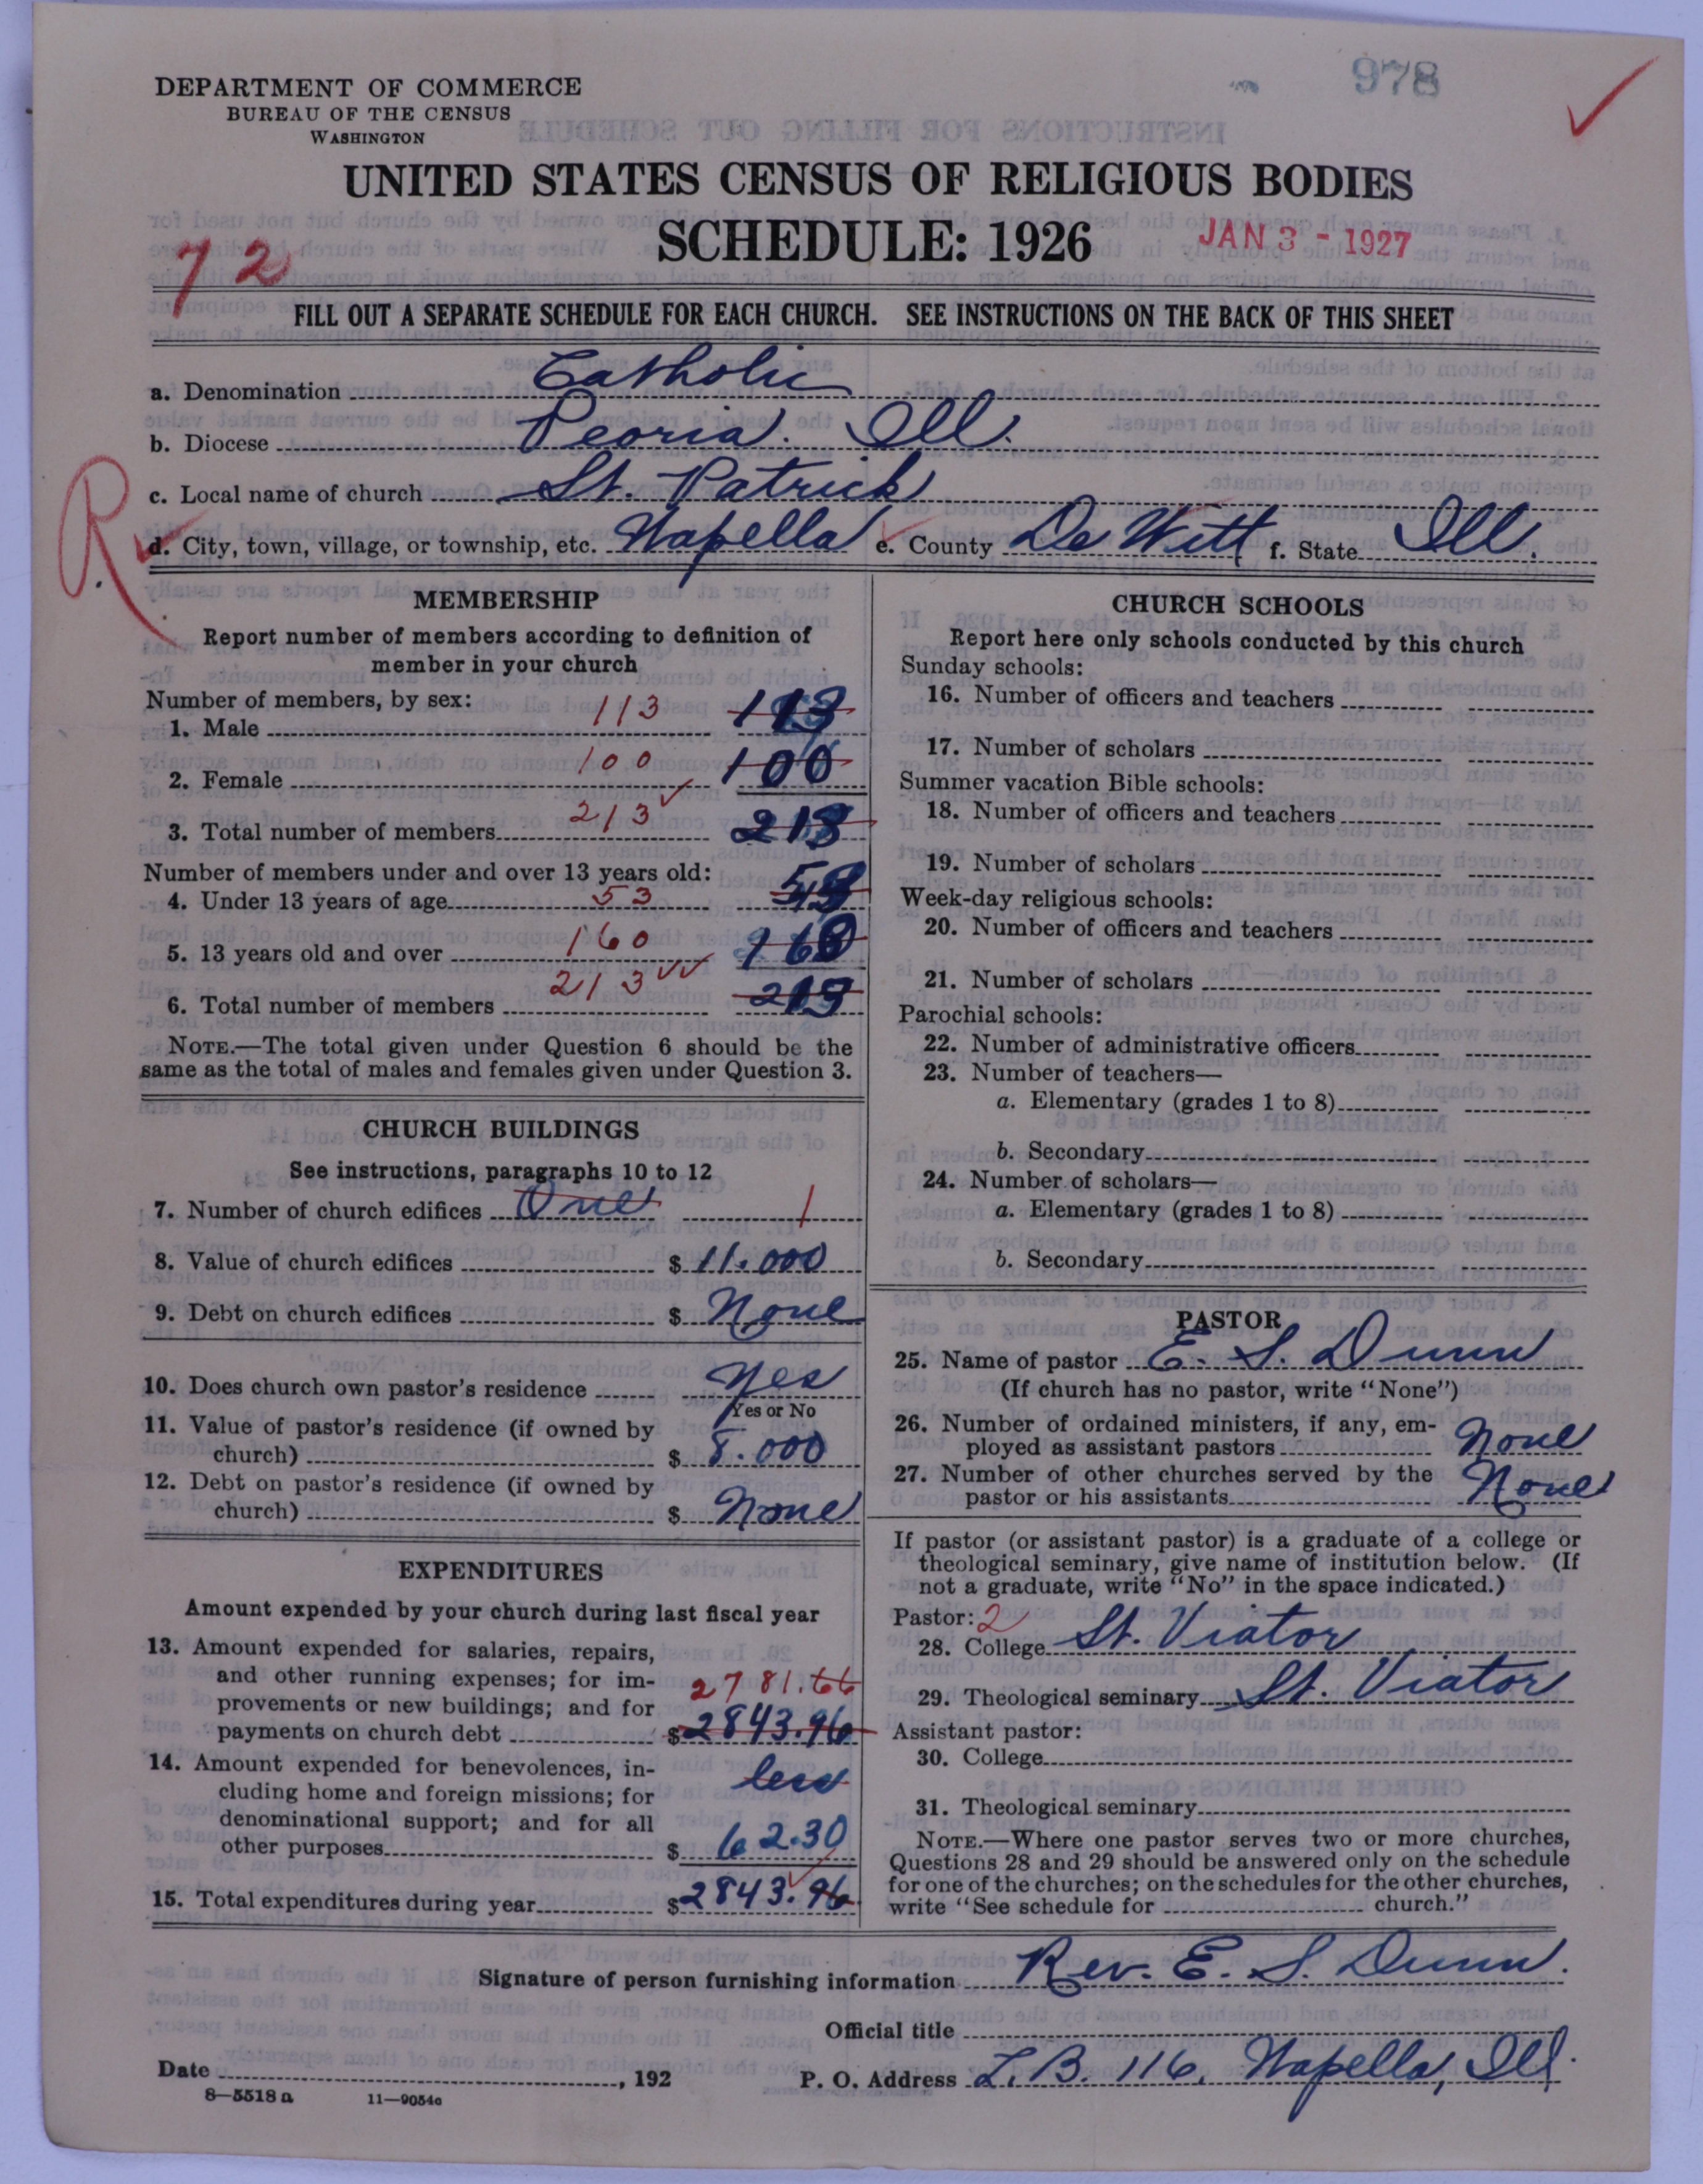 978
DEPARTMENT OF COMMERCE
BUREAU OF THE CENSUS
WASHINGTON
UNITED STATES CENSUS OF RELIGIOUS BODIES
SCHEDULE: 1926
JAN 3 - 1927
72
FILL OUT A SEPARATE SCHEDULE FOR EACH CHURCH. SEE INSTRUCTIONS ON THE BACK OF THIS SHEET
a. Denomination Catholic
b. Diocese Peoria. Ill.
c. Local name of church St. Patrick
R.
d. City, town, village, or township, etc. Wapella e. County De Witt f. State Ill.
MEMBERSHIP
Report number of members according to definition of
member in your church
Number of members, by sex:
1. Male 113 113
2. Female 100 100
3. Total number of members 213 213
Number of members under and over 13 years old:
4. Under 13 years of age 53 53
5. 13 years old and over 160 160
6. Total number of members 213 213
NOTE.—The total given under Question 6 should be the
same as the total of males and females given under Question 3.
CHURCH BUILDINGS
See instructions, paragraphs 10 to 12
7. Number of church edifices One 1
8. Value of church edifices $ 11.000
9. Debt on church edifices $ None
10. Does church own pastor's residence Yes
Yes or No
11. Value of pastor's residence (if owned by
church) $ 8.000
12. Debt on pastor's residence (if owned by
church) $ None
EXPENDITURES
Amount expended by your church during last fiscal year
13. Amount expended for salaries, repairs,
and other running expenses; for im-
provements or new buildings; and for 2781.66
payments on church debt $ 2843.96
14. Amount expended for benevolences, in- less
cluding home and foreign missions; for
denominational support; and for all
other purposes $ 62.30
15. Total expenditures during year $ 2843.96
CHURCH SCHOOLS
Report here only schools conducted by this church
Sunday schools:
16. Number of officers and teachers
17. Number of scholars
Summer vacation Bible schools:
18. Number of officers and teachers
19. Number of scholars
Week-day religious schools:
20. Number of officers and teachers
21. Number of scholars
Parochial schools:
22. Number of administrative officers
23. Number of teachers—
a. Elementary (grades 1 to 8)
b. Secondary
24. Number of scholars—
a. Elementary (grades 1 to 8)
b. Secondary
PASTOR
25. Name of pastor E. S. Dunn
(If church has no pastor, write "None")
26. Number of ordained ministers, if any, em-
ployed as assistant pastors None
27. Number of other churches served by the
pastor or his assistants None
If pastor (or assistant pastor) is a graduate of a college or
theological seminary, give name of institution below. (If
not a graduate, write "No" in the space indicated.)
Pastor: 2
28. College St. Viator
29. Theological seminary St. Viator
Assistant pastor:
30. College
31. Theological seminary
NOTE.—Where one pastor serves two or more churches,
Questions 28 and 29 should be answered only on the schedule
for one of the churches; on the schedules for the other churches,
write "See schedule for church."
Signature of person furnishing information Rev. E. S. Dunn.
Official title
Date , 192
P. O. Address L. B. 116, Wapella, Ill.
8—5518 a 11—9054a